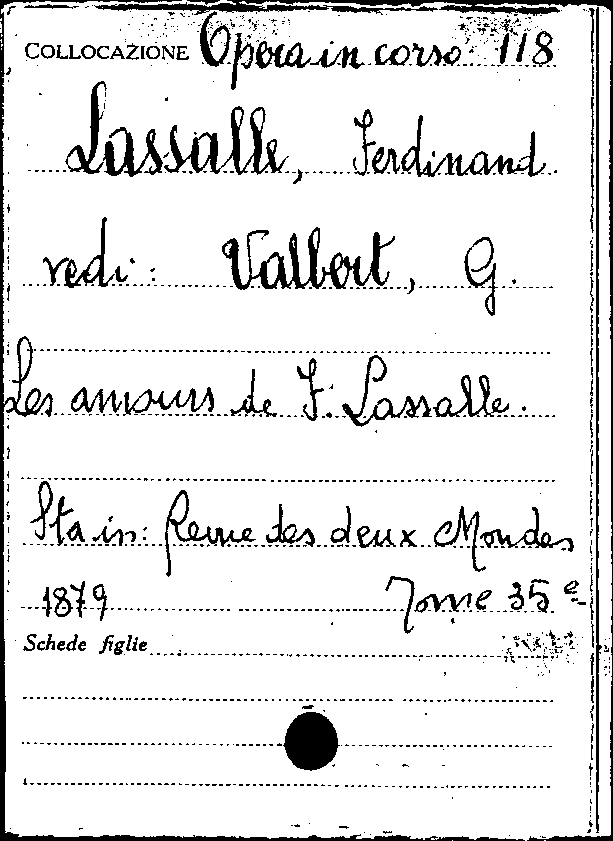 COLLOCAZIONE Opera in corso 118
Lassalle, Ferdinand.
vedi: Valbert, G.
Les amours de F. Lassalle.
Sta in: Revue des deux Mondes
1879 Tome 35e
Schede figlie